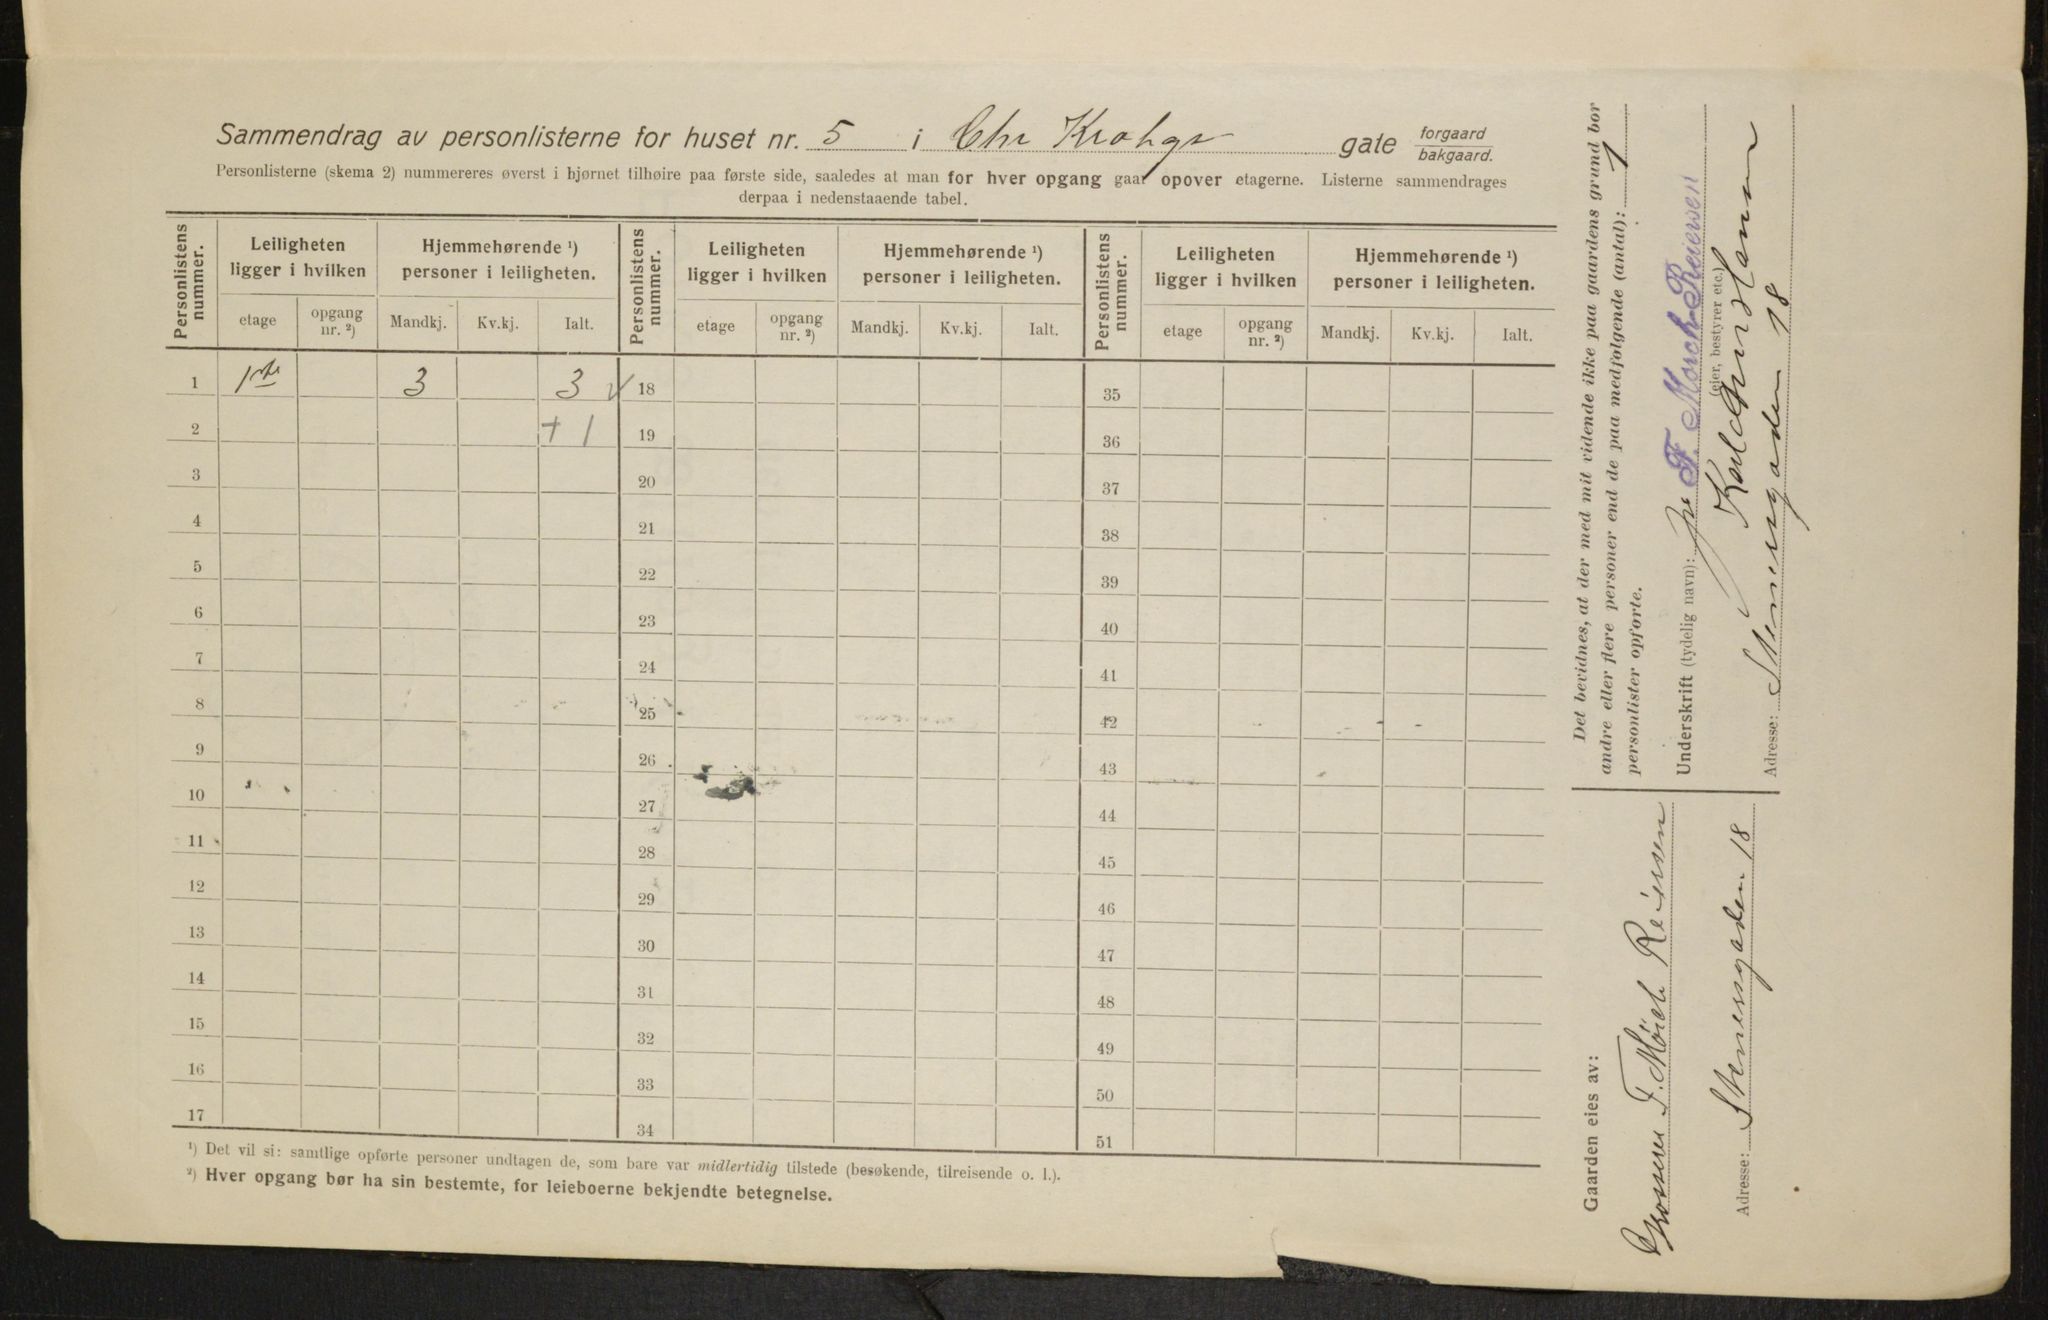 Sammendrag av personlisterne for huset nr. 5 i Chr Krohgs gate forgaard
bakgaard.
Personlisterne (skema 2) nummereres øverst i hjørnet tilhøire paa første side, saaledes at man for hver opgang gaar opover etagerne. Listerne sammendrages
derpaa i nedenstaaende tabel.
Personlistens nummer. Leiligheten ligger i hvilken Hjemmehørende ¹) personer i leiligheten. Personlistens nummer. Leiligheten ligger i hvilken Hjemmehørende ¹) personer i leiligheten. Personlistens nummer. Leiligheten ligger i hvilken Hjemmehørende ¹) personer i leiligheten.
etage opgang nr. ²) Mandkj. Kv.kj. Ialt. etage opgang nr. ²) Mandkj. Kv.kj. Ialt. etage opgang nr. ²) Mandkj. Kv.kj. Ialt.
1 1ste 3 3 ✓ 18 35
2 + 1 19 36
3 20 37
4 21 38
5 22 39
6 23 40
7 24 41
8 25 42
9 26 43
10 27 44
11 28 45
12 29 46
13 30 47
14 31 48
15 32 49
16 33 50
17 34 51
¹) Det vil si: samtlige opførte personer undtagen de, som bare var midlertidig tilstede (besøkende, tilreisende o. l.).
²) Hver opgang bør ha sin bestemte, for leieboerne bekjendte betegnelse.
Det bevidnes, at der med mit vidende ikke paa gaardens grund bor
andre eller flere personer end de paa medfølgende (antal): 1
personlister opførte.
Underskrift (tydelig navn): F. Mørch Reiersen
(eier, bestyrer etc.)
Adresse: Stenersgaden 18
Gaarden eies av:
F. Mörch Reiersen
Adresse: Stenersgaden 18